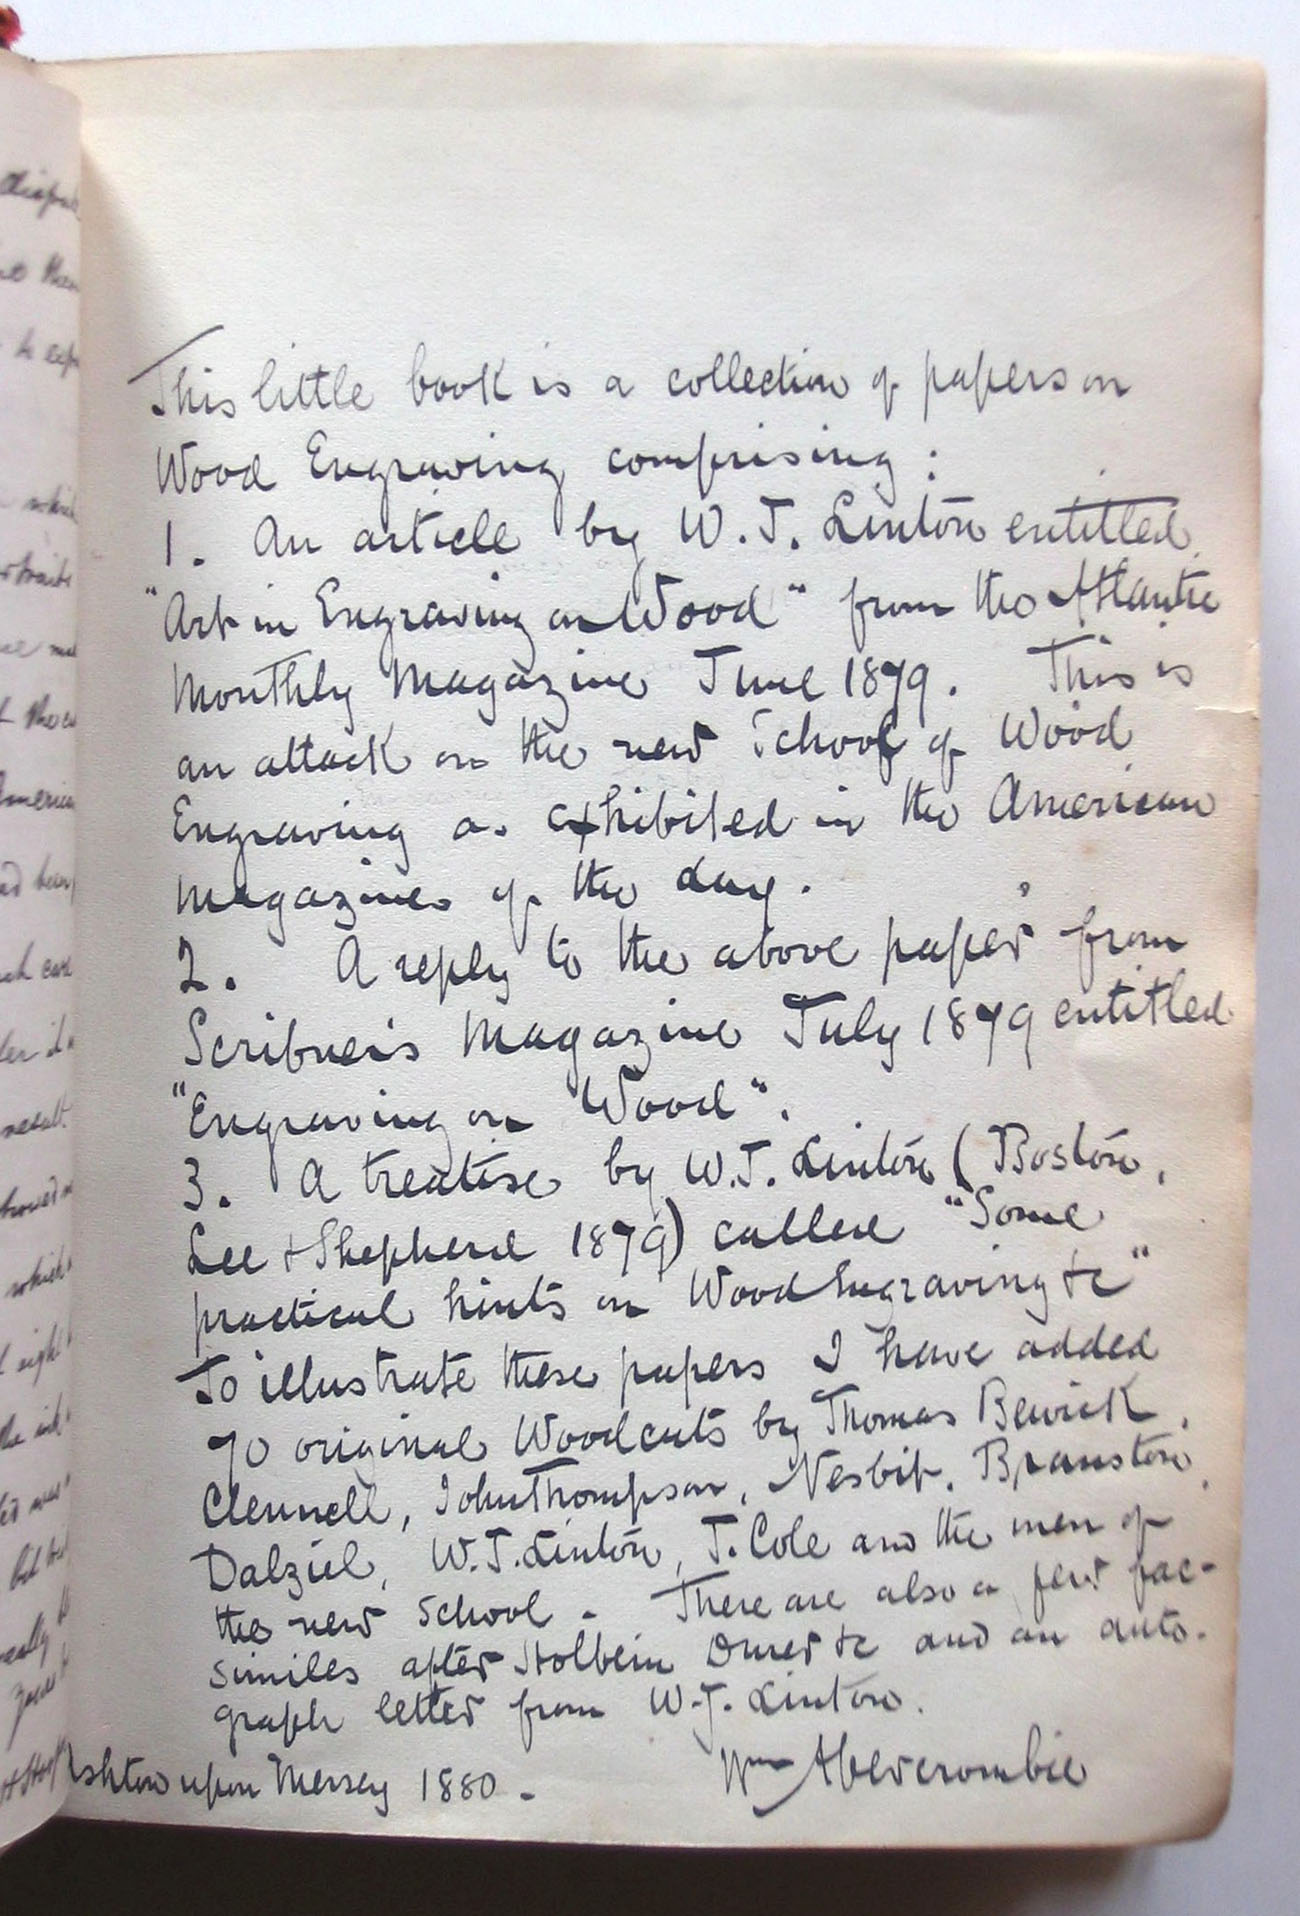 This little book is a collection of papers on
Wood Engraving comprising:
1. An article by W. J. Linton entitled
"Art in Engraving on Wood" from the Atlantic
Monthly Magazine June 1879. This is
an attack on the new School of Wood
Engraving as exhibited in the American
magazines of the day.
2. A reply to the above paper from
Scribner's Magazine July 1879 entitled
"Engraving on Wood".
3. A treatise by W. J. Linton (Boston,
Lee & Shepherd 1879) called "Some
practical hints on Wood Engraving &c"
To illustrate these papers I have added
70 original Woodcuts by Thomas Bewick,
Clennell, John Thompson, Nesbit, Branston,
Dalziel, W. J. Linton, T. Cole and the men of
the new School. There are also a few fac-
similes after Holbein Durer &c and an auto-
graph letter from W. J. Linton.
Wm Abercrombie
Ashton upon Mersey 1880.